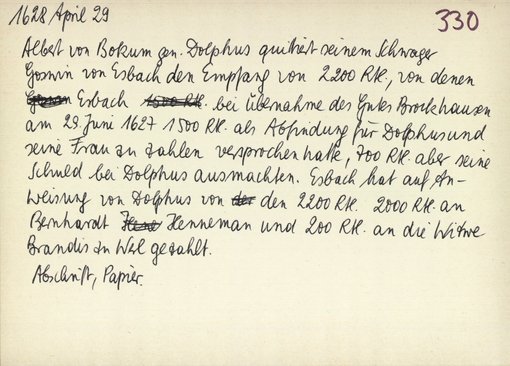 1628 April 29
330
Albert von Bokum gen. Dolphus quittiert seinem Schwager
Goswin von Esbach den Empfang von 2200 Rtl., von denen
Esbach bei Übernahme des Gutes Brockhausen
am 29. Juni 1627 1500 Rtl. als Abfindung für Dolphus und
seine Frau zu zahlen versprochen hatte, 700 Rtl. aber seine
Schuld bei Dolphus ausmachten. Esbach hat auf An-
weisung von Dolphus von den 2200 Rtl. 2000 Rtl. an
Bernhardt Henneman und 200 Rtl. an die Witwe
Brandis zu Werl gezahlt.
Abschrift, Papier.